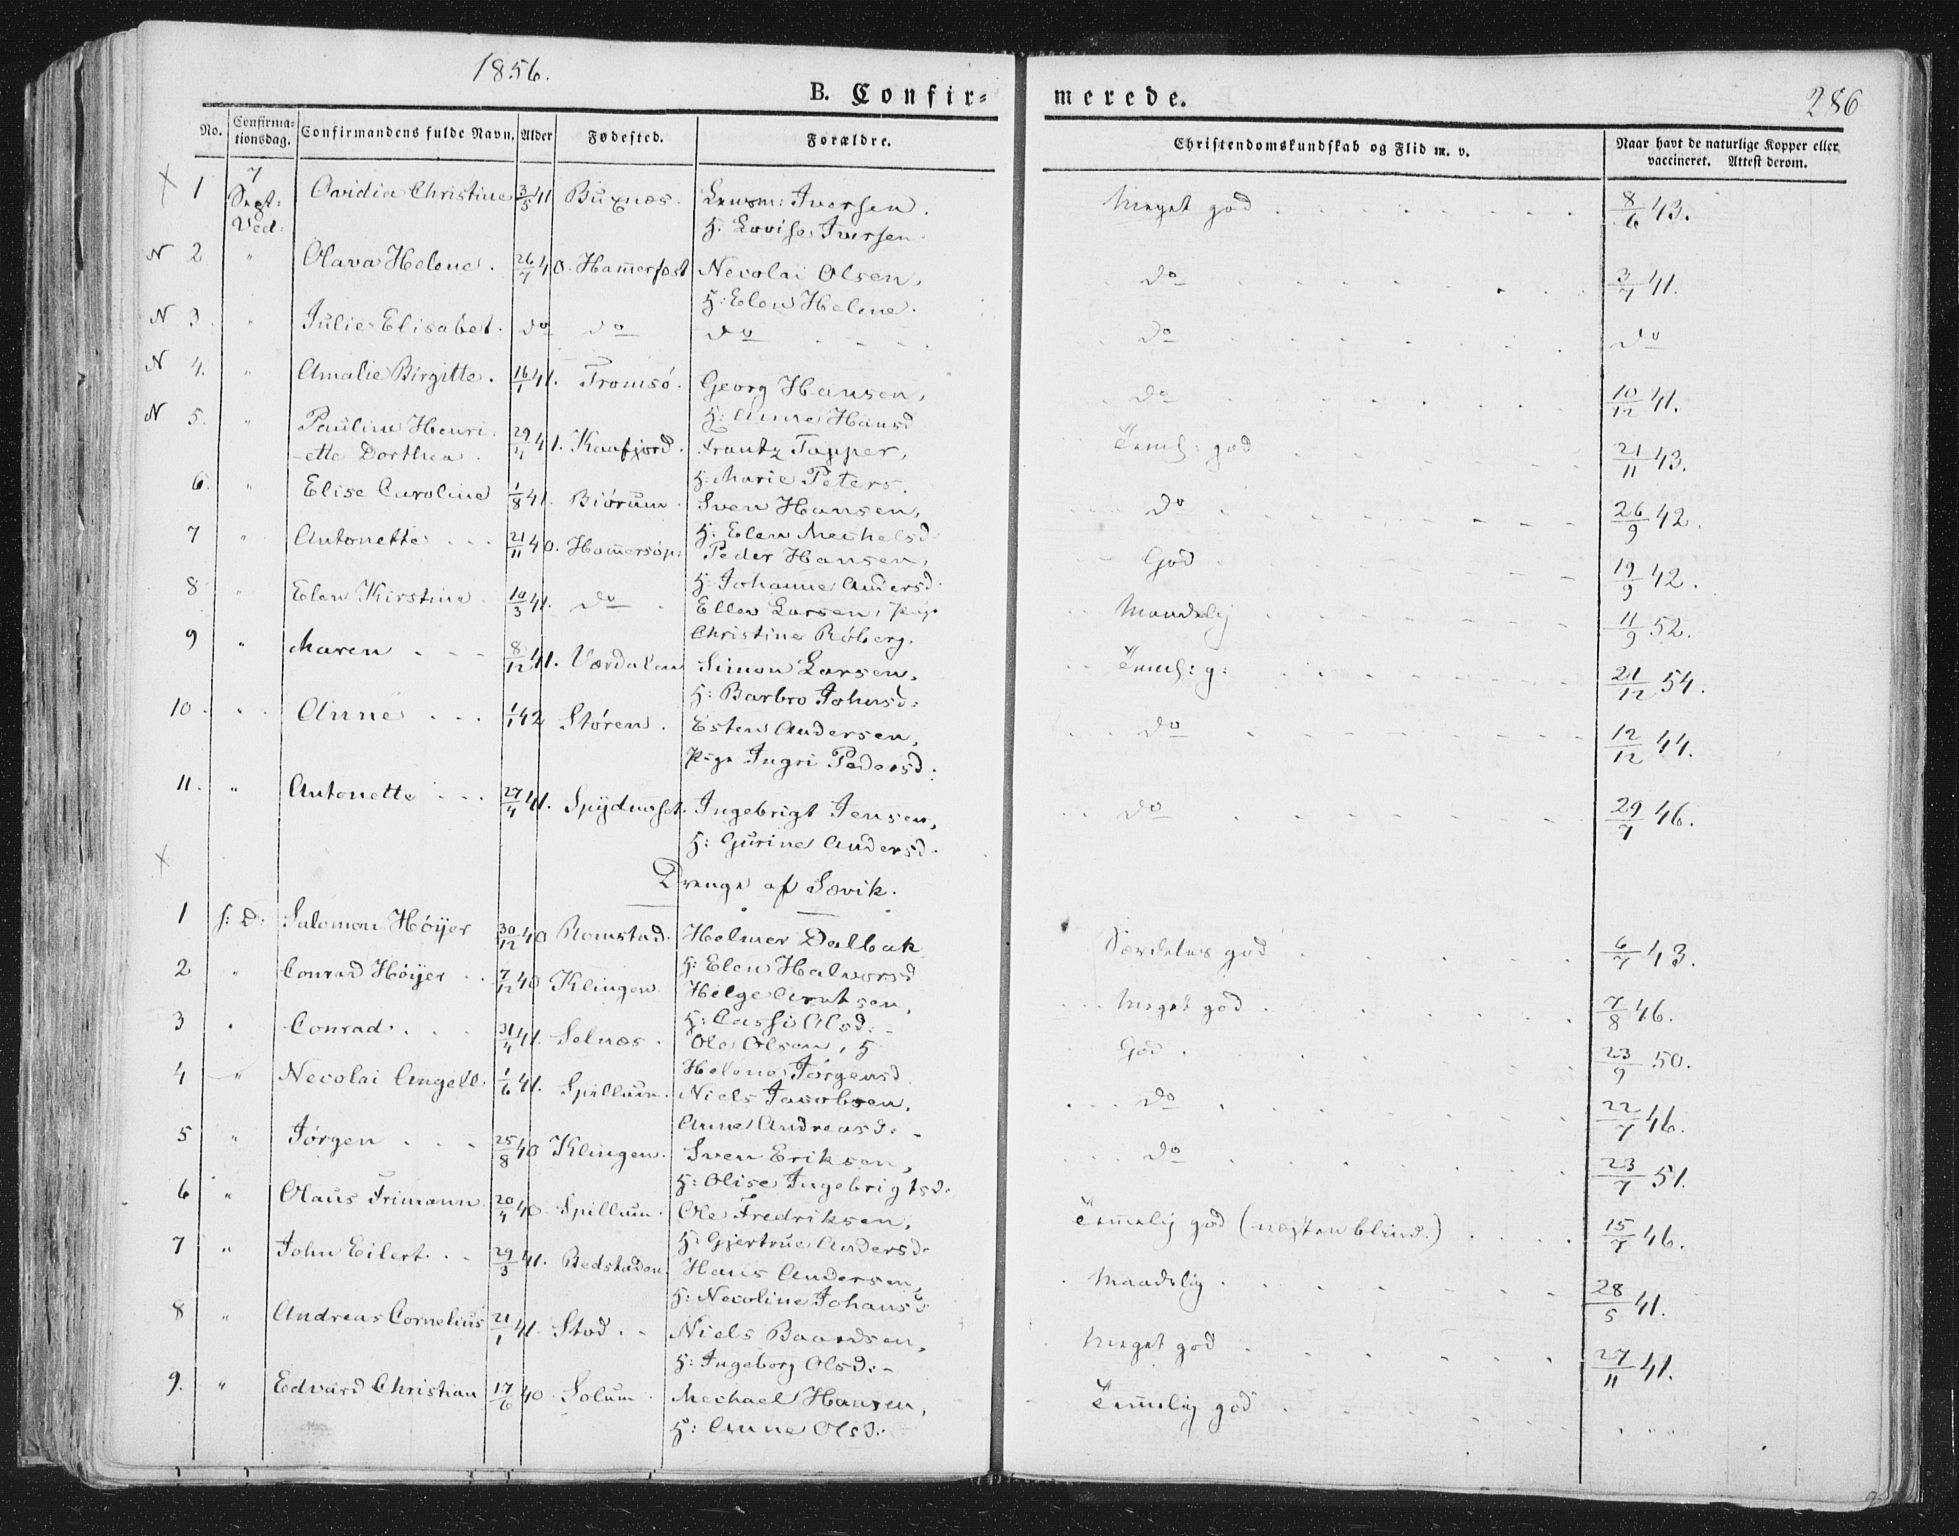 1856.
B. Confir-
merede.
286
No. Confirma-tionsdag. Confirmandens fulde Navn. Alder Fødested. Forældre. Christendomskundskab og Flid m. v. Naar havt de naturlige Kopper eller vaccineret. Attest derom.
1 7 Sept: Ovidia Christine 3/5 41 Buxnæs. Lensm: Iversen. Meget god 8/6 43.
Ved: H: Lovise Iversen.
N 2 " Olava Helene. 26/7 40. Hamerfest Necolai Olsen, do 3/7 41.
H: Elen Helene.
N 3. " Julie Elisabet. do do do do do
N 4. " Amalie Birgitte. 16/1 41. Tromsö. Georg Hansen, do 10/12 41.
H: Anne Hansd
N 5. " Pauline Henri-
-ette Dorthea. 29/4 41. Kaafjord. Frantz Tapper, Teml: god 21/11 43.
H: Marie Peters.
6. " Elise Caroline 1/8 41. Biörum. Sven Hansen, do 26/9 42.
H: Elen Mechelsd
7 " Antonette 21/11 40. Peder Hansen, God 19/9 42.
H: Johanne Andersd
8 " Elen Kirstine 10/3 41. do Ellev Larsen, Pige Maadelig 11/9 52.
Christine Röberg.
9 " Maren 8/12 41. Værdalen Simon Larsen, Teml: g: 21/12 54.
H: Barbro Johnsd:
10. " Anne 1/1 42 Stören. Esten Andersen, do 12/12 44.
Pige Ingri Pedersd:
11. " Antonette 27/4 41. Ingebrigt Jensen, do 29/7 46.
H: Gurine Andersd.
Drenge af Sævik.
1 s: D: Salomon Höyer 30/12 40 Romstad. Helmer Dalbak Særdeles god 6/7 43.
H: Elen Halvorsd
2 " Conrad Höyer 7/12 40 Klingen Helge Arntsen, Meget god 7/8 46.
H: Olsd:
3 " Conrad 41. Selnæs. Ole Olsen, H God 23/9 50.
Helene Jörgensd
4 " Necolai Angell 1/6 41. Spillum. Niels Jacobsen, do 22/7 46.
Anne Andreasd:
5 " Jörgen 25/8 40 Klingen. Sven Eriksen, do 23/7 51.
H: Olise Ingebrigtsd.
6 " Olaus Frimann 20/4 40 Spillum. Ole Fredriksen, Temelig god (næsten blind.) 15/7 46.
H: Gjertrue Andersd.
7 " John Eilert 29/3 41. Hans Andersen, Maadelig 28/5 41.
H: Necoline Johansd
8 " Andreas Cornelius 21/1 41. Stod. Niels Baardsen, Meget god 27/11 41.
H: Ingeborg Olsd:
9. " Edvard Christian 17/6 40 Solum. Mechael Hansen, Temelig god " " "
H: Anne Olsd.